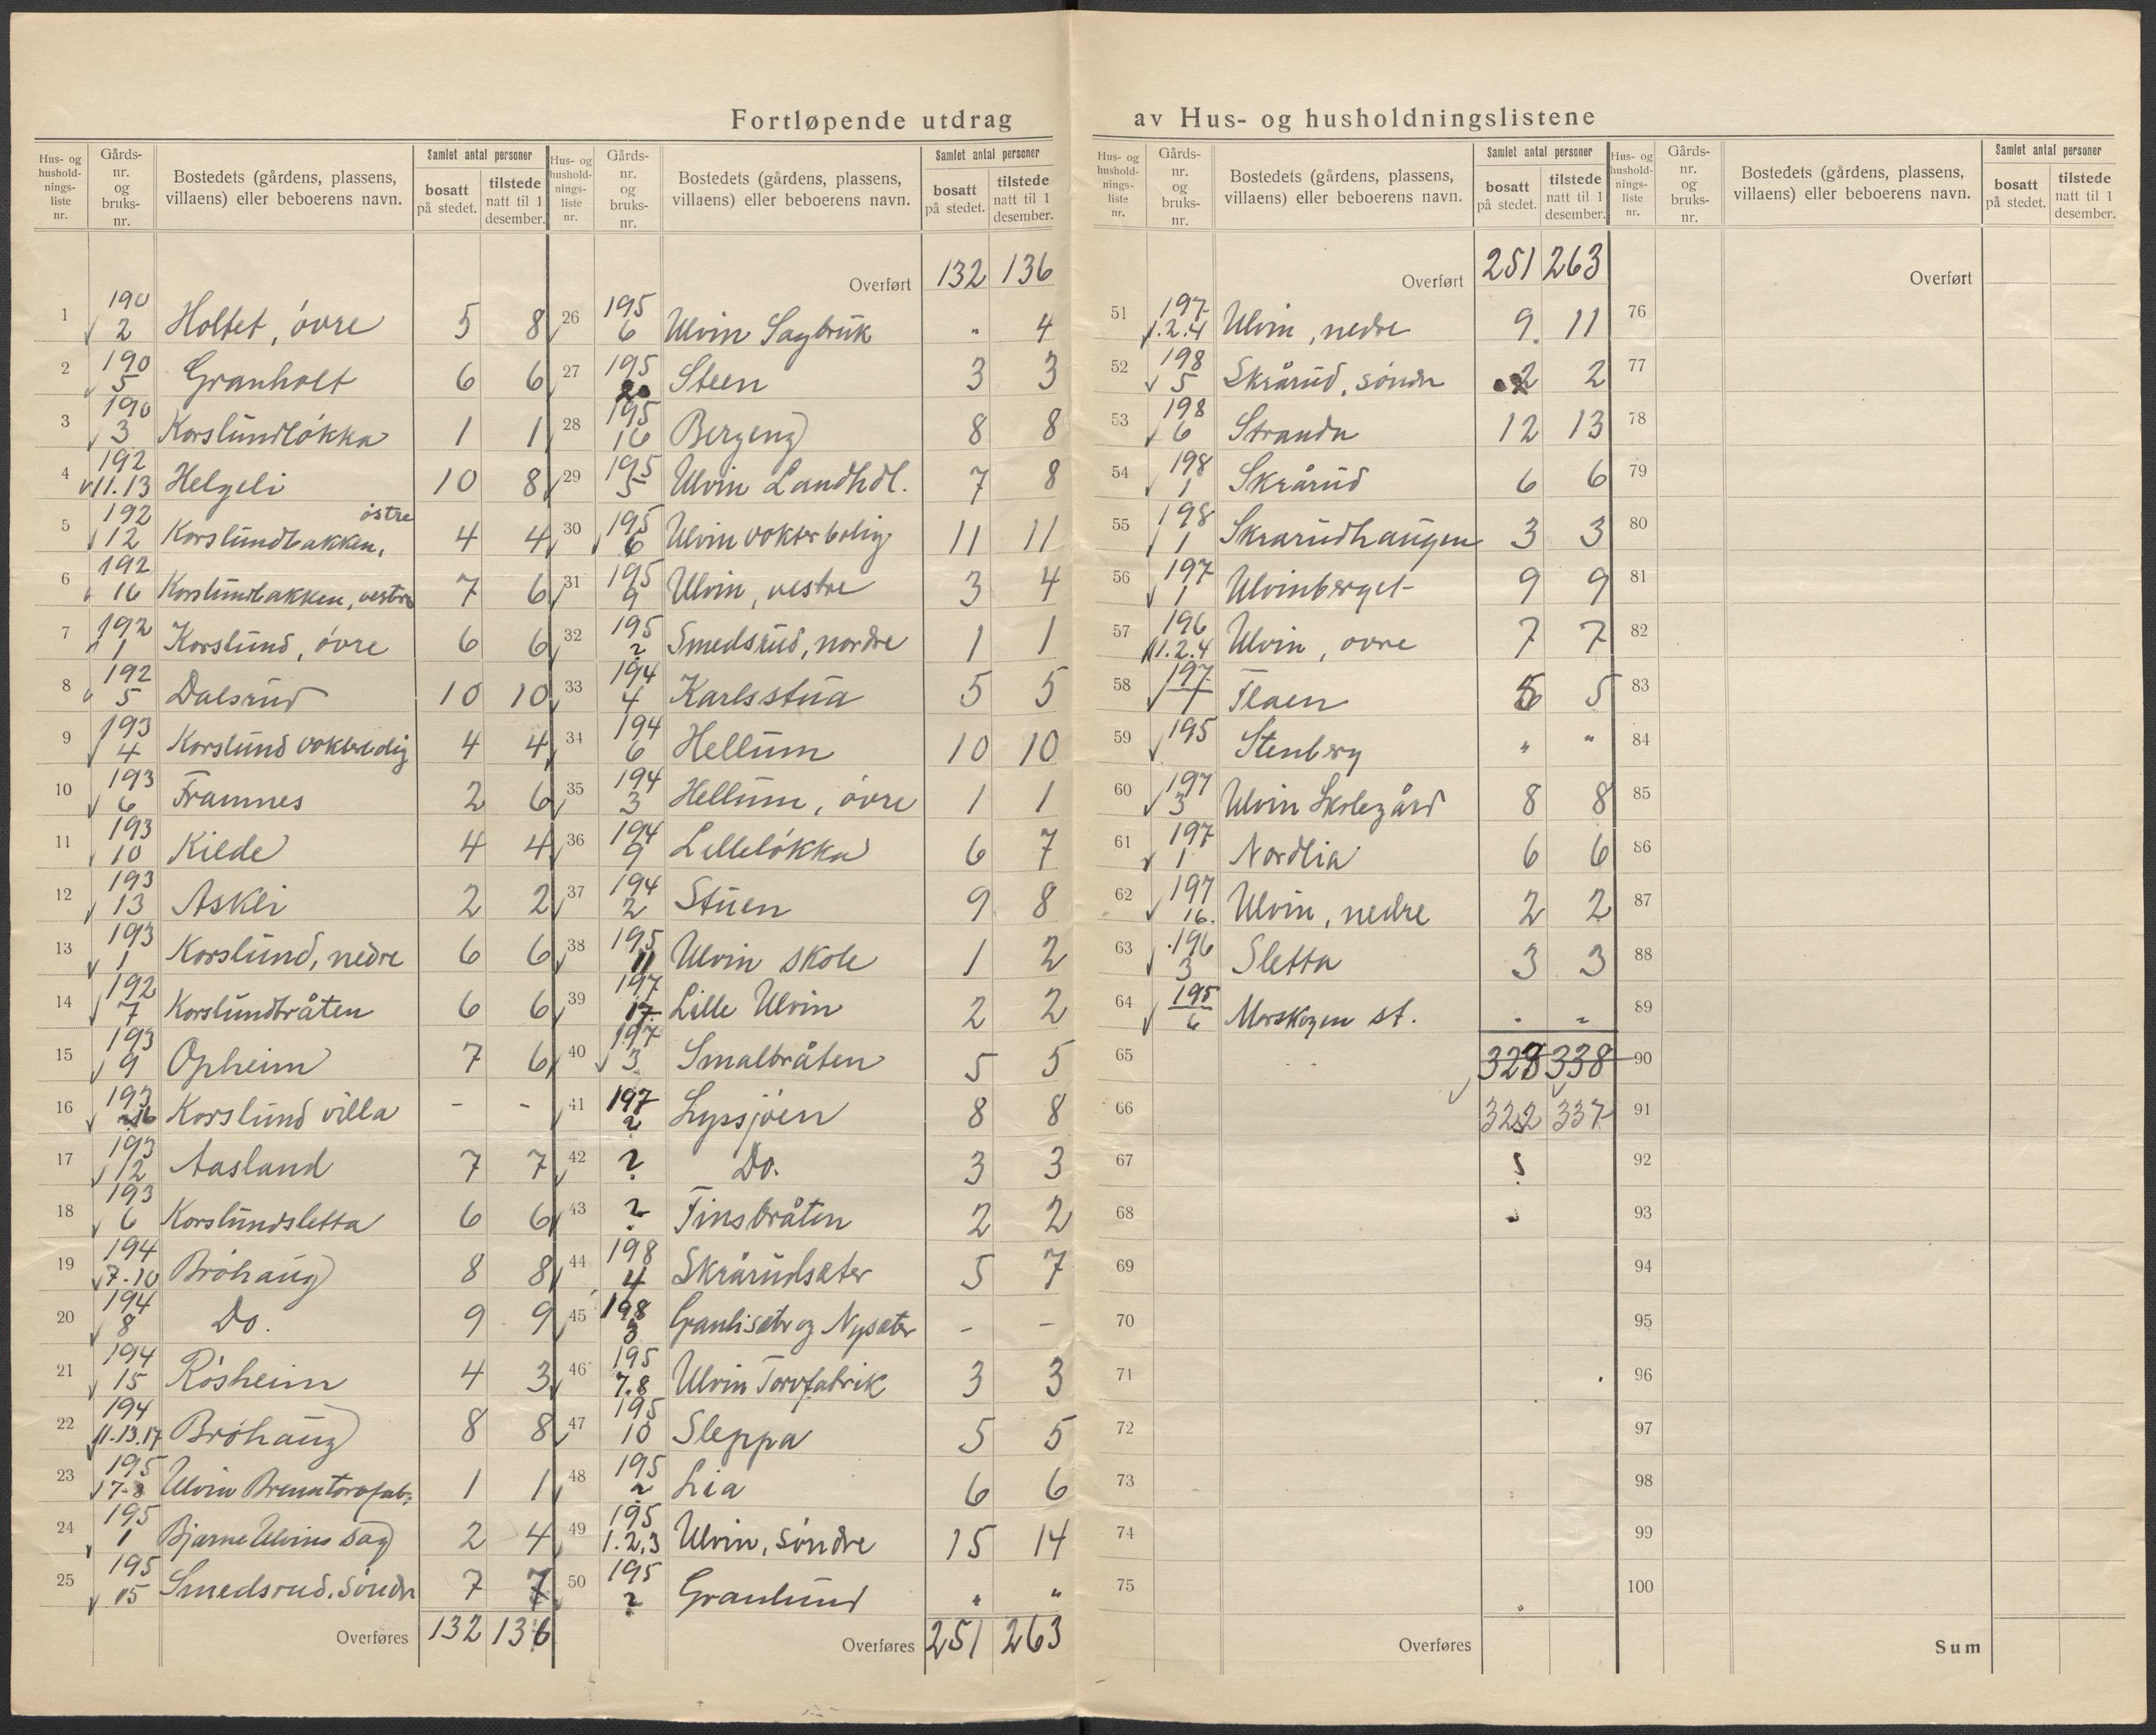 Fortløpende utdrag av Hus- og husholdningslistene
Hus- og husholdnings- liste nr. | Gårds- nr. og bruks- nr. | Bostedets (gårdens, plassens, villaens) eller beboerens navn. | Samlet antal personer | bosatt på stedet. | tilstede natt til 1 desember.
1 190/2 Holtet, övre 5 8
2 190/5 Granholt 6 6
3 190/3 Korslundløkka 1 1
4 192/11.13 Helgeli 10 8
5 192/12 Korslundbakken, östre 4 4
6 192/16 Korslundbakken, vestre 7 6
7 192/1 Korslund, övre 6 6
8 192/5 Dalsrud 10 10
9 193/4 Korslund vokterbolig 4 4
10 193/6 Framnes 2 6
11 193/10 Kilde 4 4
12 193/13 Askli 2 2
13 193/1 Korslund, nedre 6 6
14 192/7 Korslundbråten 6 6
15 193/9 Opheim 7 6
16 193/16 Korslund villa - -
17 193/12 Aasland 7 7
18 193/6 Korslundsletta 6 6
19 194/7-10 Bröhaug 8 8
20 194/8 Do. 9 9
21 194/15 Rösheim 4 3
22 194/11-13.17 Bröhaug 8 8
23 195 Ulvin Brenntorvfab. 1 1
24 195/1 Bjarne Ulvins Sag 2 4
25 195/15 Smedsrud, Söndre 7 7
Overføres 132 136
Hus- og husholdnings- liste nr. | Gårds- nr. og bruks- nr. | Bostedets (gårdens, plassens, villaens) eller beboerens navn. | Samlet antal personer | bosatt på stedet. | tilstede natt til 1 desember.
Overført 132 136
26 195/6 Ulvin Sagbruk " 4
27 195/20 Steen 3 3
28 195/16 Bergeng 8 8
29 195/5 Ulvin Landhdl. 7 8
30 195/6 Ulvin vokterbolig 11 11
31 195/9 Ulvin, vestre 3 4
32 195/? Smedsrud, nordre 1 1
33 194/4 Karlsstua 5 5
34 194/6 Hellum 10 10
35 194/3 Hellum, övre 1 1
36 194/9 Lilleløkka 6 7
37 194/2 Stuen 9 8
38 195/11 Ulvin skole 1 2
39 197/17 Lille Ulvin 2 2
40 197/3 Smalbråten 5 5
41 197/? Lyssjöen 8 8
42 ? Do. 3 3
43 ? Finsbråten 2 2
44 198/4 Skrårudsæter 5 7
45 198/3 Granliseter og Nysæter - -
46 195/7.8 Ulvin Torvfabrik 3 3
47 195/10 Sleppa 5 5
48 195/? Lia 6 6
49 195/1.2,3 Ulvin, Söndre 15 14
50 195/? Granlund " "
Overføres 251 263
Hus- og husholdnings- liste nr. | Gårds- nr. og bruks- nr. | Bostedets (gårdens, plassens, villaens) eller beboerens navn. | Samlet antal personer | bosatt på stedet. | tilstede natt til 1 desember.
Overført 251 263
51 197/1.2.4 Ulvin, nedre 9 11
52 198/5 Skrårud, söndre 2 2
53 198/6 Stranda 12 13
54 198/1 Skrårud 6 6
55 198/1 Skrarudhaugen 3 3
56 197/1 Ulvinberget 9 9
57 196/1.2.4 Ulvin, ovre 7 7
58 197/7 Flaen 5 5
59 195 Stenberg " "
60 197/3 Ulvin Skolegård 8 8
61 197/1 Nordlia 6 6
62 197/16. Ulvin, nedre 2 2
63 196/3 Sletta 3 3
64 195/6 Morskogen st. - -
65 328 338
66 322 337
67
68
69
70
71
72
73
74
75
Overføres
Hus- og husholdnings- liste nr. | Gårds- nr. og bruks- nr. | Bostedets (gårdens, plassens, villaens) eller beboerens navn. | Samlet antal personer | bosatt på stedet. | tilstede natt til 1 desember.
Overført
76
77
78
79
80
81
82
83
84
85
86
87
88
89
90
91
92
93
94
95
96
97
98
99
100
Sum